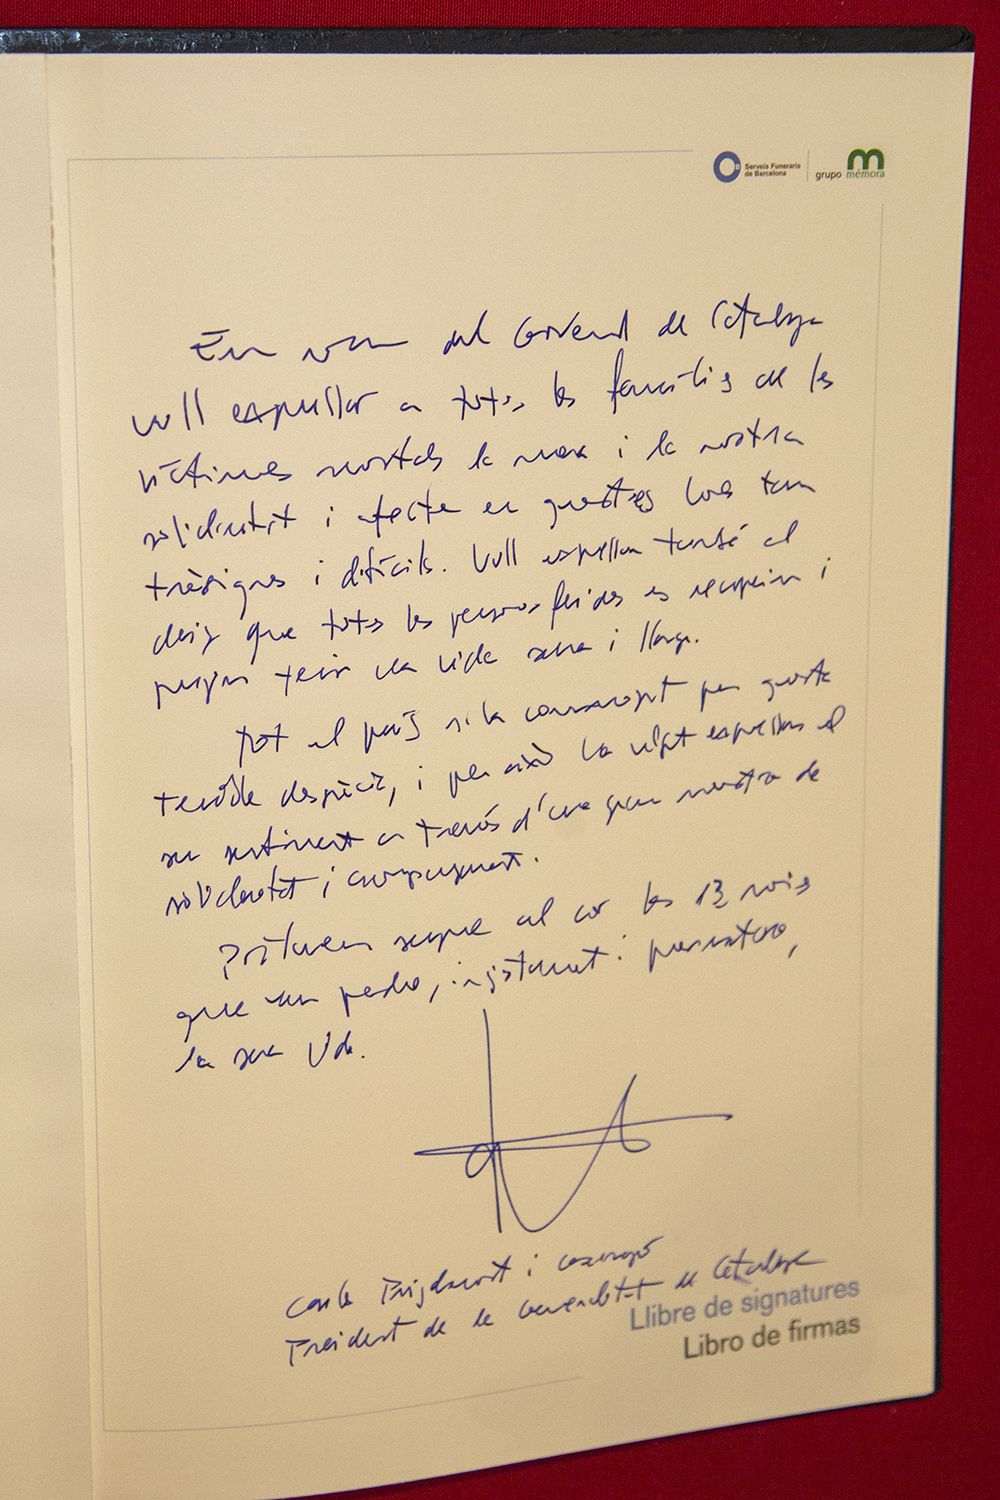 Serveis Funeraris
de Barcelona
grupo mémora
En nom del Govern de Catalunya
vull expressar a totes les famílies de les
víctimes mortals la meva i la nostra
solidaritat i afecte en aquestes hores tan
tràgiques i difícils. Vull expressar també el
desig que totes les persones ferides es recuperin i
puguin tenir una vida sana i llarga.
Tot el país s'ha commogut per aquesta
terrible desgràcia, i per això ha volgut expressar el
seu sentiment a través d'una gran mostra de
solidaritat i acompanyament.
Portarem sempre al cor les 13 noies
que van perdre, injustament i prematura,
la seva vida.
Carles Puigdemont i Casamajó
President de la Generalitat de Catalunya
Llibre de signatures
Libro de firmas